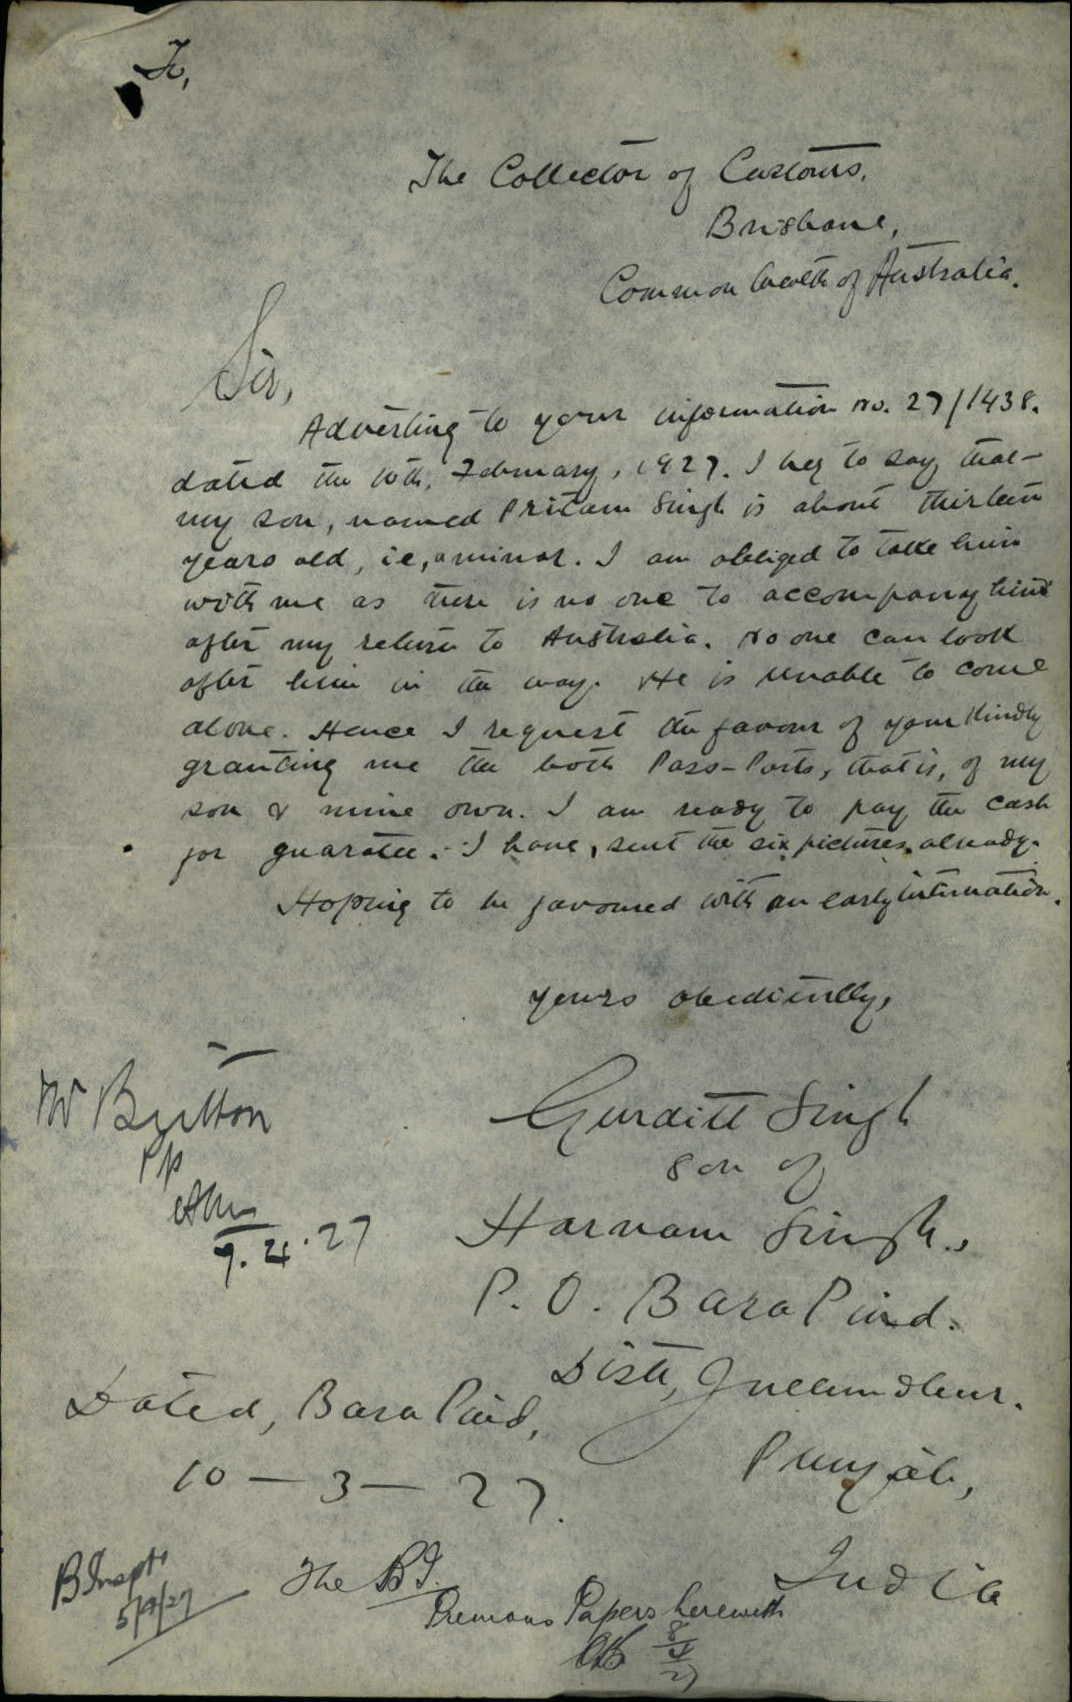 To,
The Collector of Customs,
Brisbane,
Common Wealth of Australia.
Sir,
Adverting to your information No. 27/1438.
dated the 10th, February, 1927. I beg to say that
my son, named Pritam Singh is about thirteen
years old, ie, a minor. I am obliged to take him
with me as there is no one to accompany him
after my return to Australia. No one can look
after him in the way. He is unable to come
alone. Hence I request the favour of your kindly
granting me the both Pass-Ports, that is, of my
son & mine own. I am ready to pay the cash
for guaratee. I have, sent the six pictures already.
Hoping to be favoured with an early intimation.
yours obediently,
Gurditt Singh
son of
Harnam Singh,
P. O. Bara Pind.
Distt, Jullundhur.
Punjab,
India
Mr Britton
pp
9.4.27
Dated, Bara Pind,
10-3-27.
B Inspr
5/4/27
The BI.
Previous Papers herewith
8/4/27